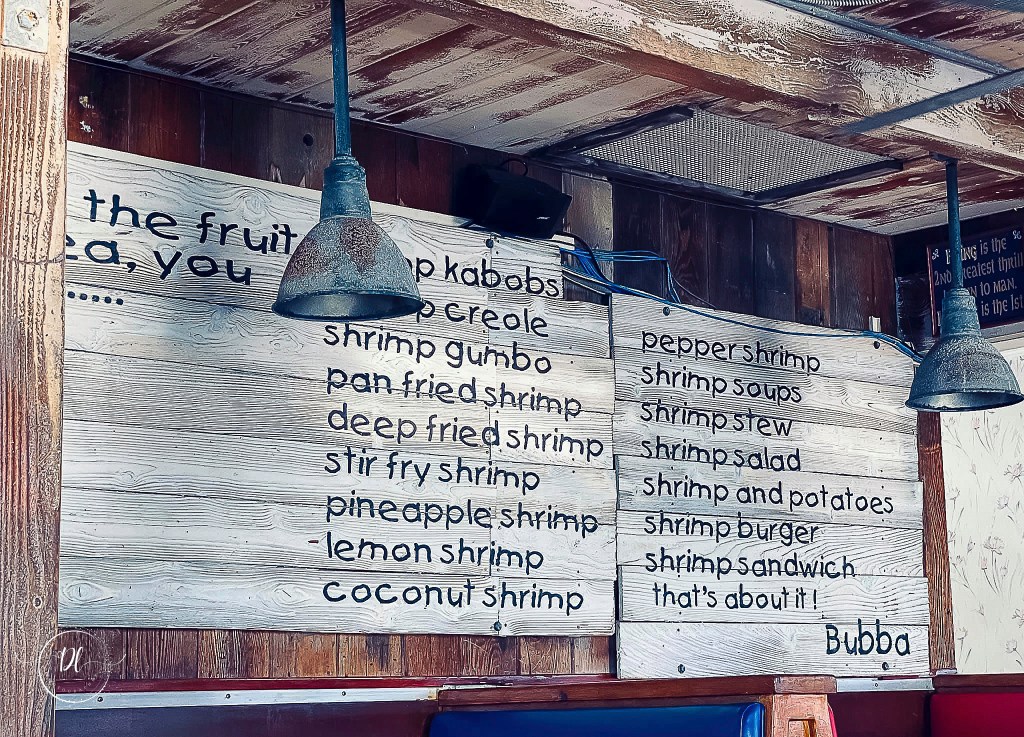 the fruit
you
.....
kabobs
creole
shrimp gumbo
pan fried shrimp
deep fried shrimp
stir fry shrimp
pineapple shrimp
lemon shrimp
coconut shrimp
pepper shrimp
shrimp soups
shrimp stew
shrimp salad
shrimp and potatoes
shrimp burger
shrimp sandwich
that's about it!
Bubba
is the
2ND greatest thrill
TO MAN.
is the 1st
DL